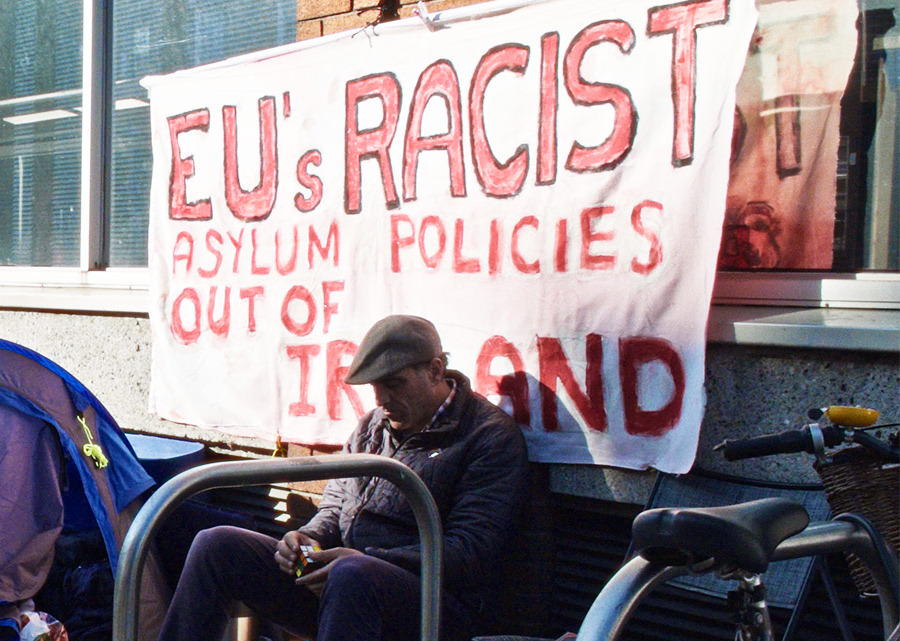 EU's RACIST
ASYLUM POLICIES
OUT OF
IRELAND